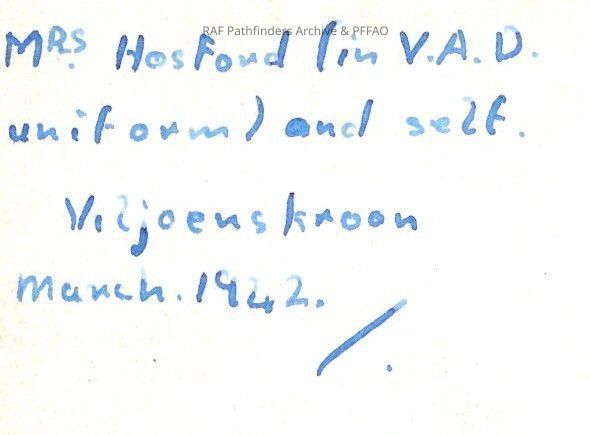 RAF Pathfinders Archive & PFFAO
MRS. Hosford (in V.A.D.
uniform) and self.
Viljoenskroon
March. 1942.